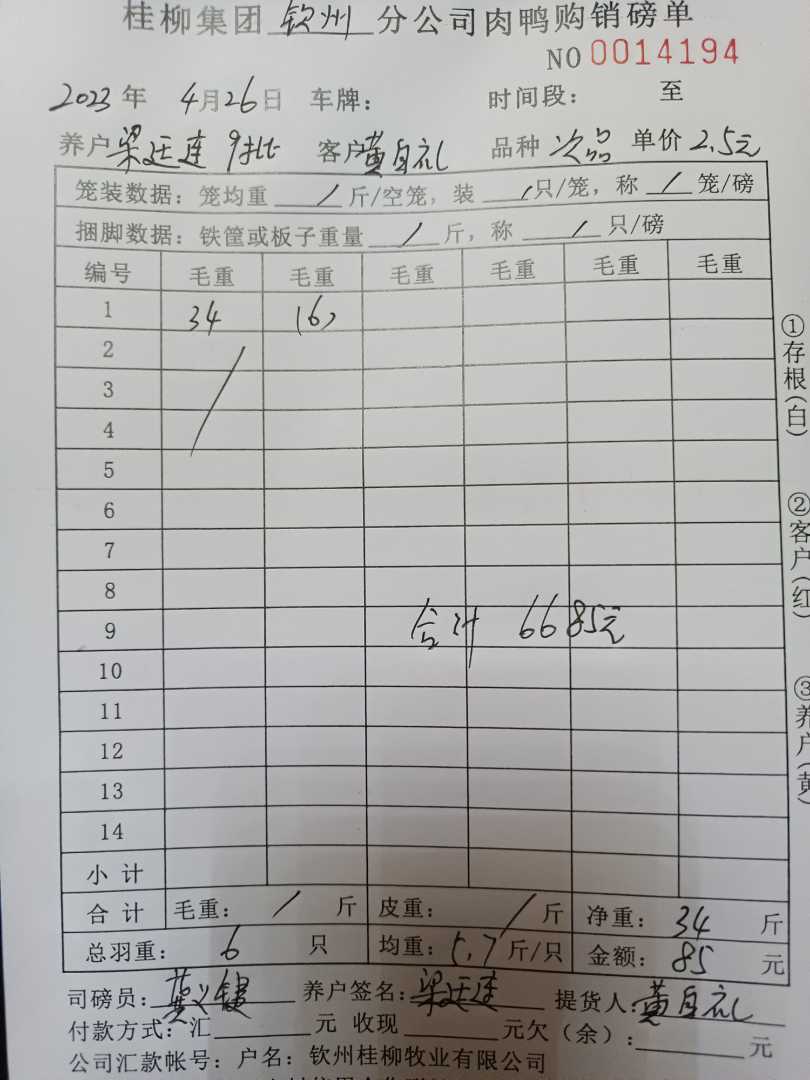 桂柳集团 钦州 分公司肉鸭购销磅单
NO 0014194
2023年 4月26日 车牌： 时间段： 至
养户 梁廷连 9批 客户 黄自礼 品种 次品 单价 2.5元
笼装数据：笼均重 / 斤/空笼，装 / 只/笼，称 / 笼/磅
捆脚数据：铁筐或板子重量 / 斤，称 / 只/磅
编号 毛重 毛重 毛重 毛重 毛重 毛重
1 34 (6)
2
3
4
5
6
7
8
9 合计 6685元
10
11
12
13
14
小计
合计 毛重： / 斤 皮重： / 斤 净重： 34 斤
总羽重： 6 只 均重： 5.7 斤/只 金额： 85 元
司磅员： 养户签名：梁廷连 提货人：黄自礼
付款方式：汇 元 收现 元欠（余）： 元
公司汇款帐号：户名：钦州桂柳牧业有限公司
①存根(白)
②客户(红)
③养户(黄)